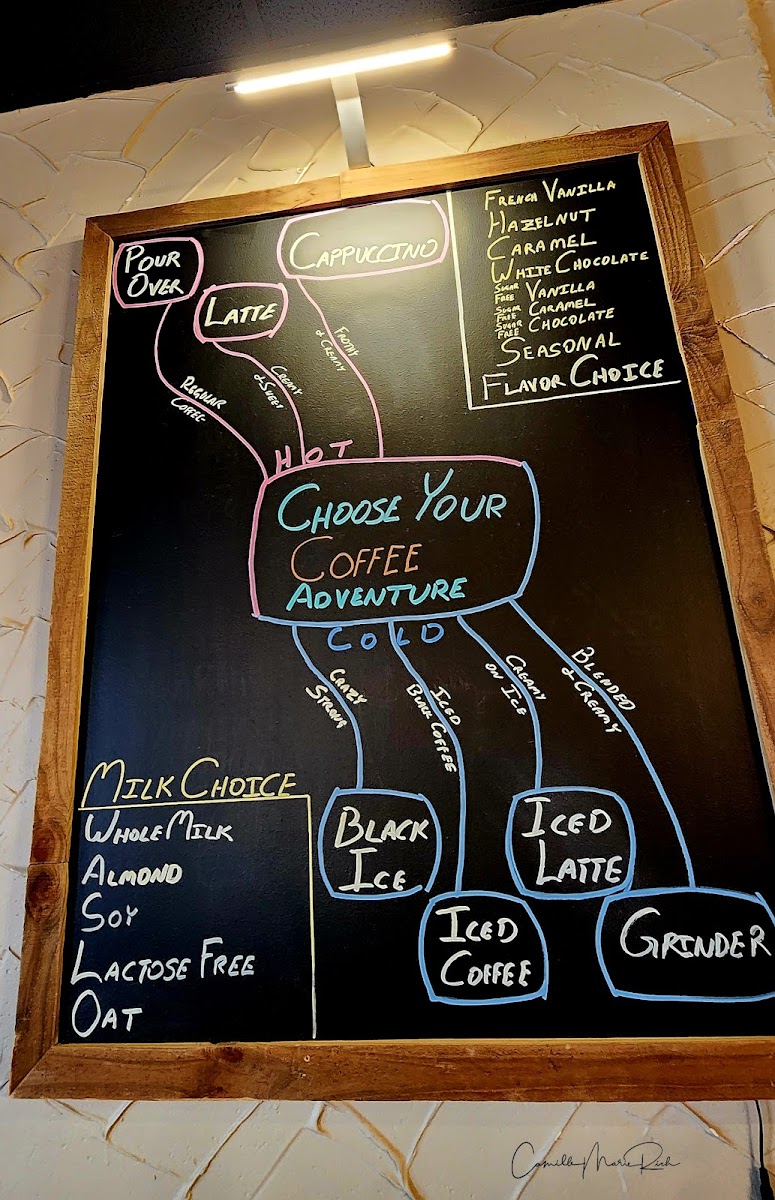 French Vanilla
Hazelnut
Caramel
White Chocolate
Sugar Free Vanilla
Sugar Free Caramel
Sugar Free Chocolate
Seasonal
Flavor Choice
Pour
Over
Latte
Cappuccino
Regular
Coffee
Creamy
& Sweet
Frothy
& Creamy
HOT
Choose Your
Coffee
Adventure
COLD
Crazy
Strong
Iced
Black Coffee
Creamy
on Ice
Blended
& Creamy
Black
Ice
Iced
Coffee
Iced
Latte
Grinder
Milk Choice
Whole Milk
Almond
Soy
Lactose Free
Oat
Camille Marie Rich